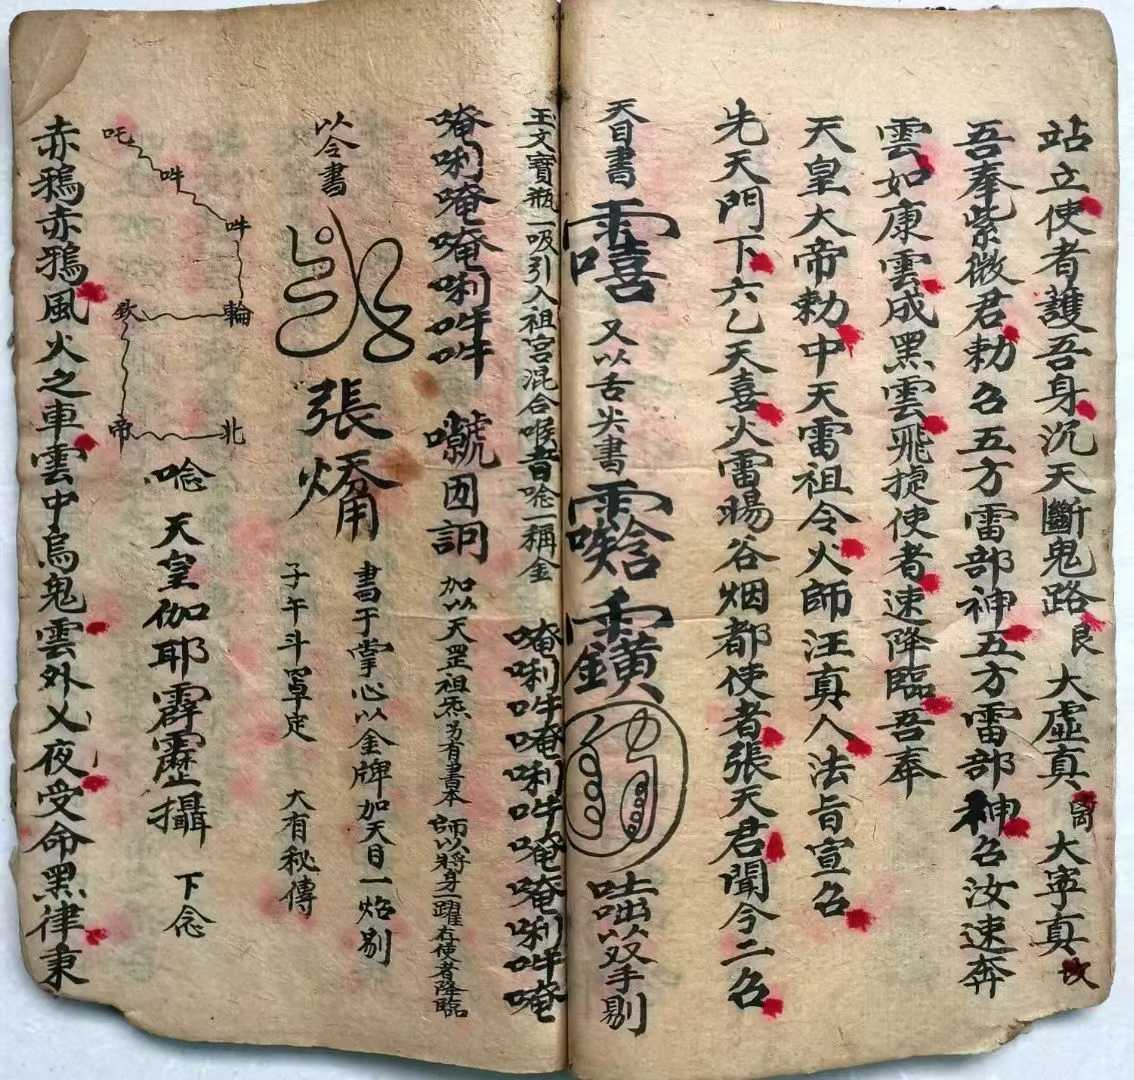 站立使者護吾身沉天斷鬼路良大虛真大寧真
吾奉紫微君勅召五方雷部神五方雷部神召汝速奔
雲如康雲成黑雲飛捷使者速降臨吾奉
天皇大帝勅中天雷祖令火師汪真人法旨宣召
先天門下六乙天喜大雷暘谷烟都使者張天君聞令二召
天目書
又以舌尖書
咄以双手剔
玉文寶瓶一吸引入祖宮混合喉音唸一稱金
唵唎吽唵唎吽唵唵唎吽唵
唵唎唵唵唎吽吽
加以天罡祖炁另有書本師以將身一躍右使者降臨
以令書
張
書于掌心以金牌加天目一烙剔
子午斗罩定大有秘傳
吒
吽
吽
輪
帝
北
唸天皇伽耶霹靂攝下念
赤鴉赤鴉風火之車雲中烏鬼雲外乂夜受命黑律秉